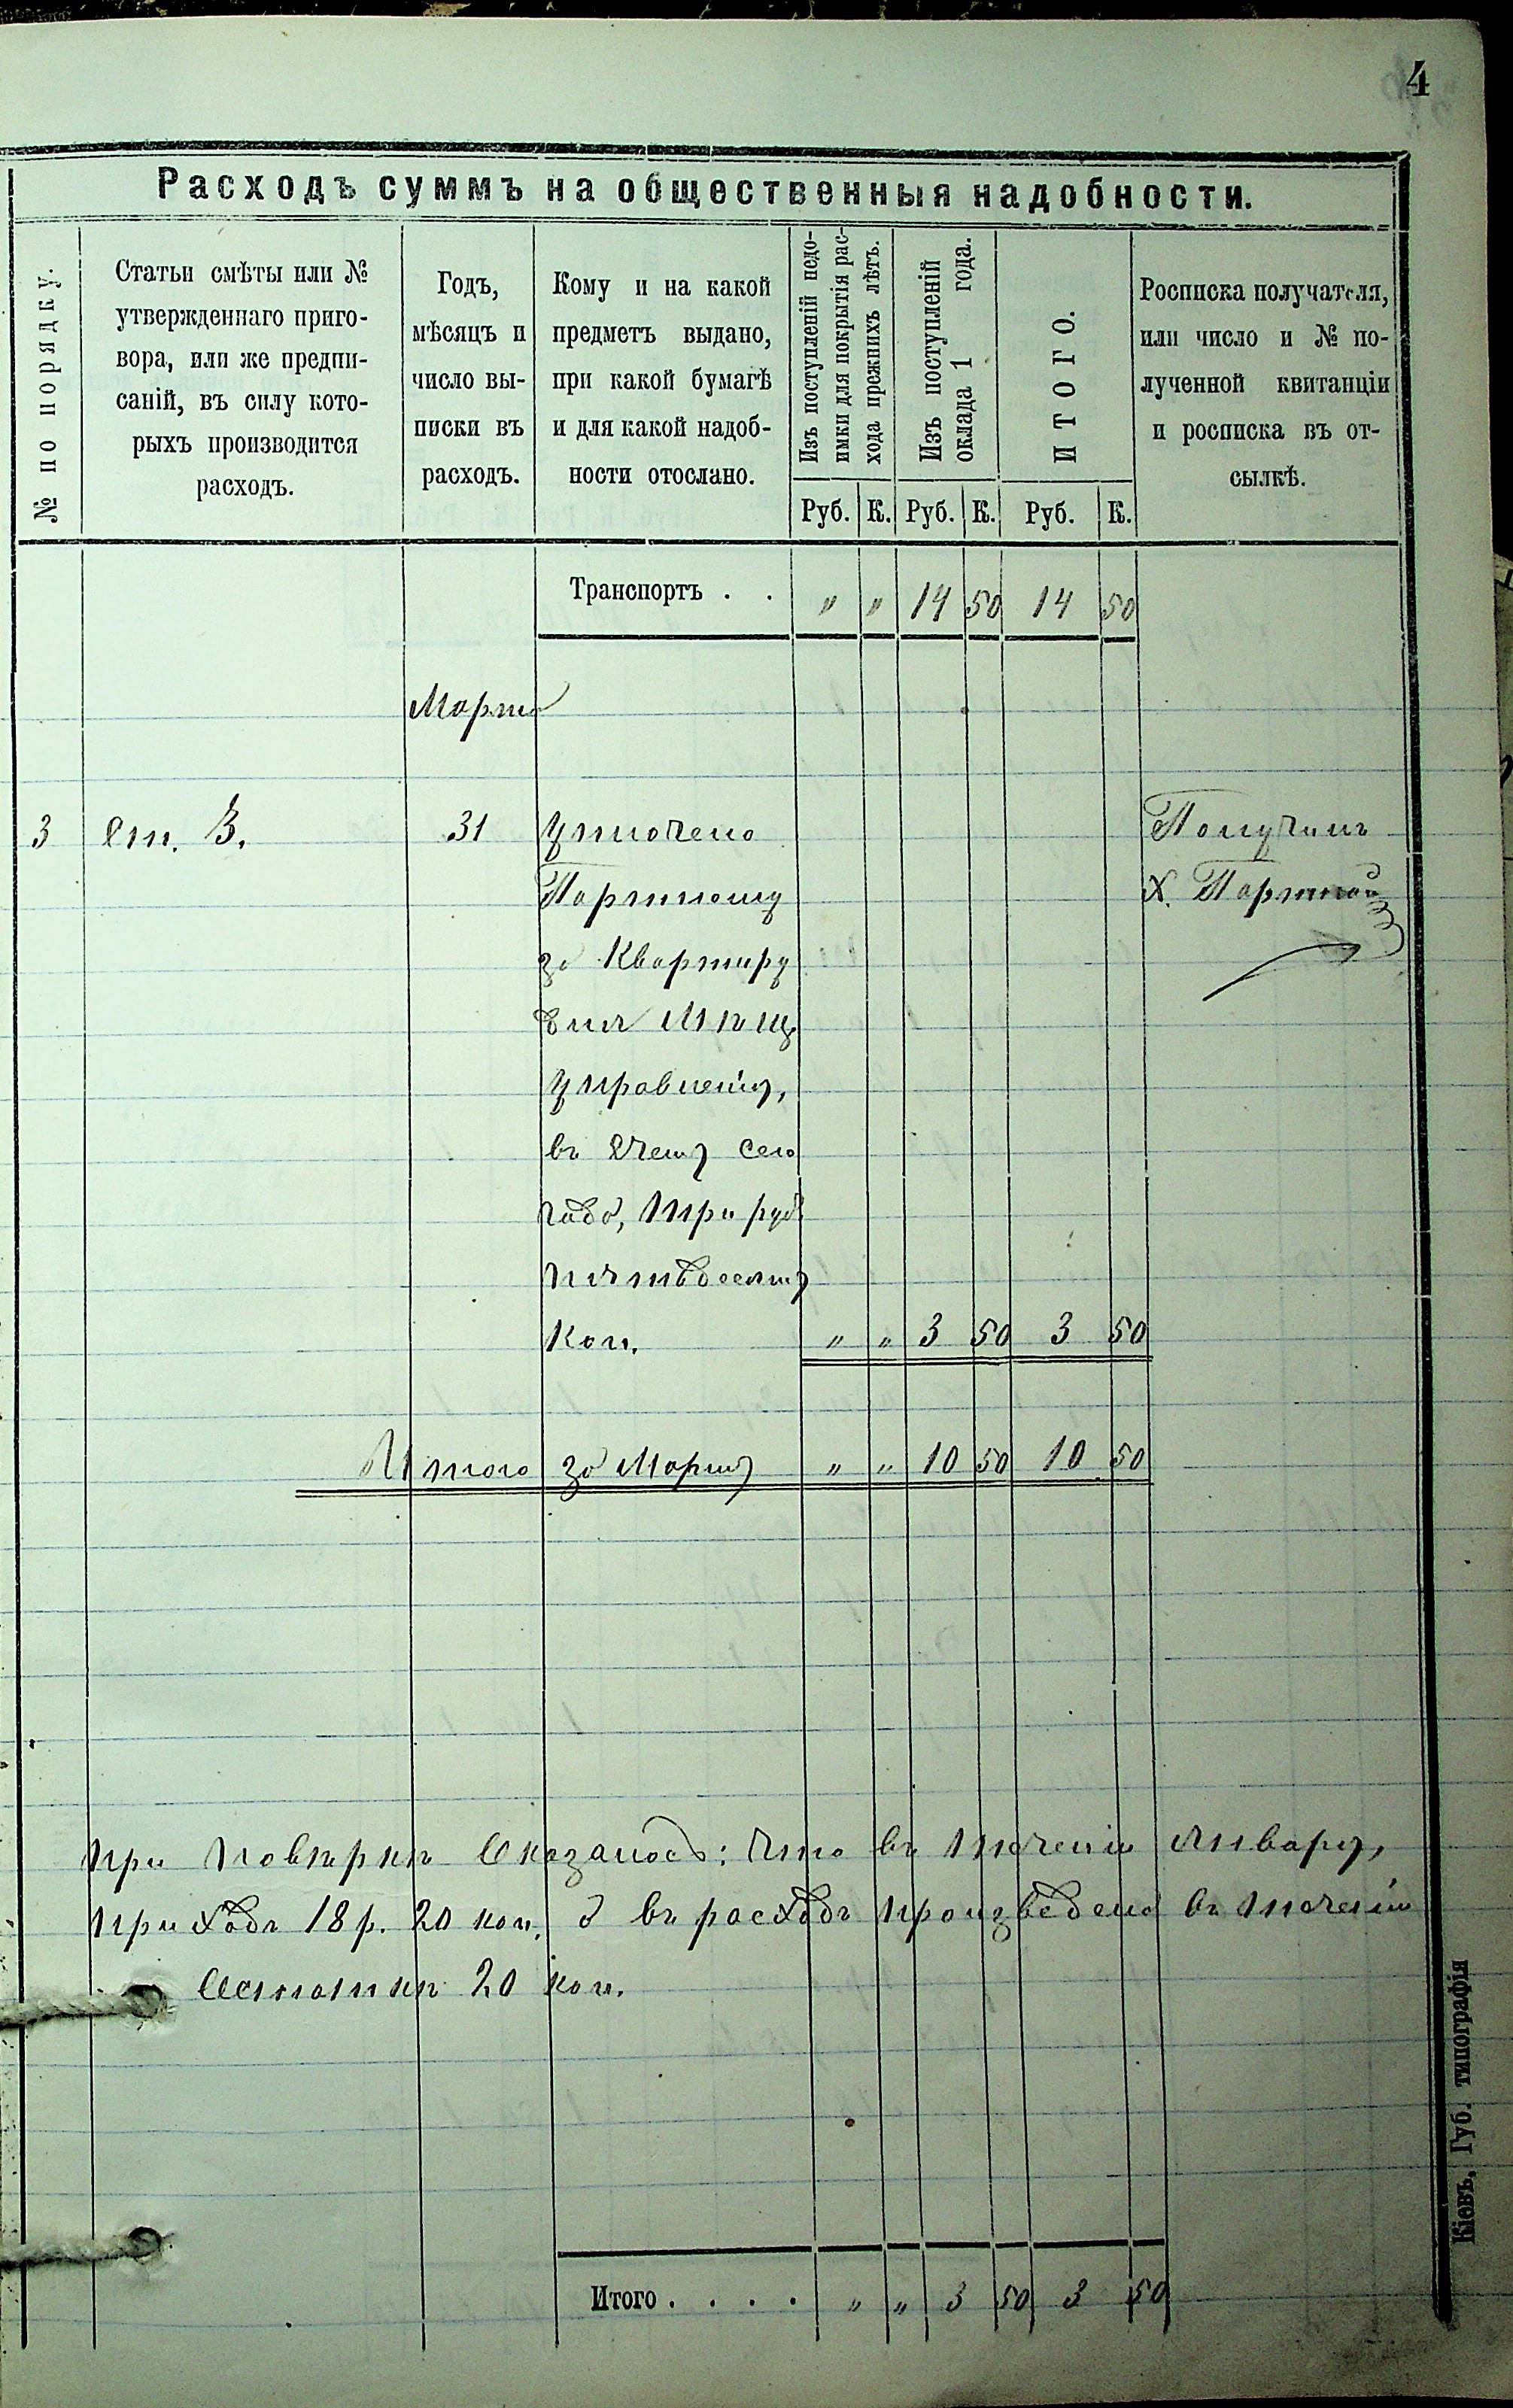 4
Расходъ суммъ на общественныя надобности.
№ по порядку.
Статьи смѣты или №
утвержденнаго приго-
вора, или же предпи-
саній, въ силу кото-
рыхъ производится
расходъ.
Годъ,
мѣсяцъ и
число вы-
писки въ
расходъ.
Кому и на какой
предметъ выдано,
при какой бумагѣ
и для какой надоб-
ности отослано.
Изъ поступленій недо-
имки для покрытія рас-
хода прежнихъ лѣтъ.
Изъ поступленій
оклада 1 года.
ИТОГО.
Росписка получателя,
или число и № по-
лученной квитанціи
и росписка въ от-
сылкѣ.
Руб. К. Руб. К. Руб. К.
Транспортъ . . " " 14 50 14 50
Марта
3 Ст. 3. 31 Уплочено Получилъ
Портному Х. Портной
за Квартиру
для Мѣщ.
Управленія,
въ Счетъ сего
года, Три руб.
пятьдесятъ
Коп. " " 3 50 3 50
Итого за Мартъ " " 10 50 10 50
при повѣркѣ Оказалось: что въ теченіи Январь,
приходъ 18 р. 20 коп. а въ расходъ произведено въ теченіи
Остаткѣ 20 коп.
Итого . . . . " " 3 50 3 50
Кіевъ, Губ. типографія